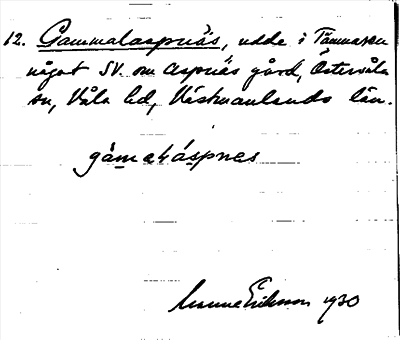 12. Gammalaspnäs, udde i Tämnaren
något SV. om Aspnäs gård, Östervåla
sn, Våla hd, Västmanlands län.
gámaláspnes
Manne Eriksson 1930